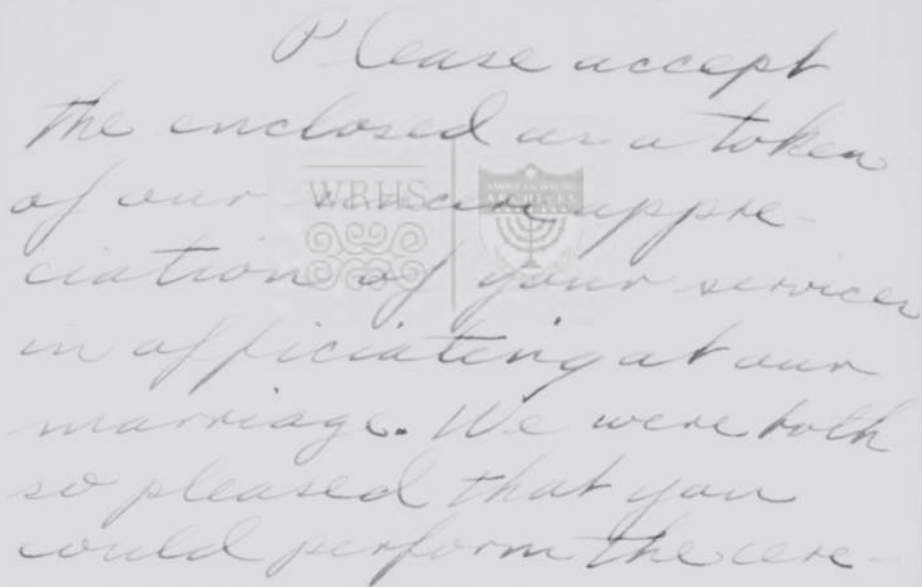 Please accept
the enclosed as a token
of our sincere appre-
ciation of your services
in officiating at our
marriage. We were both
so pleased that you
could perform the cere-
WRHS